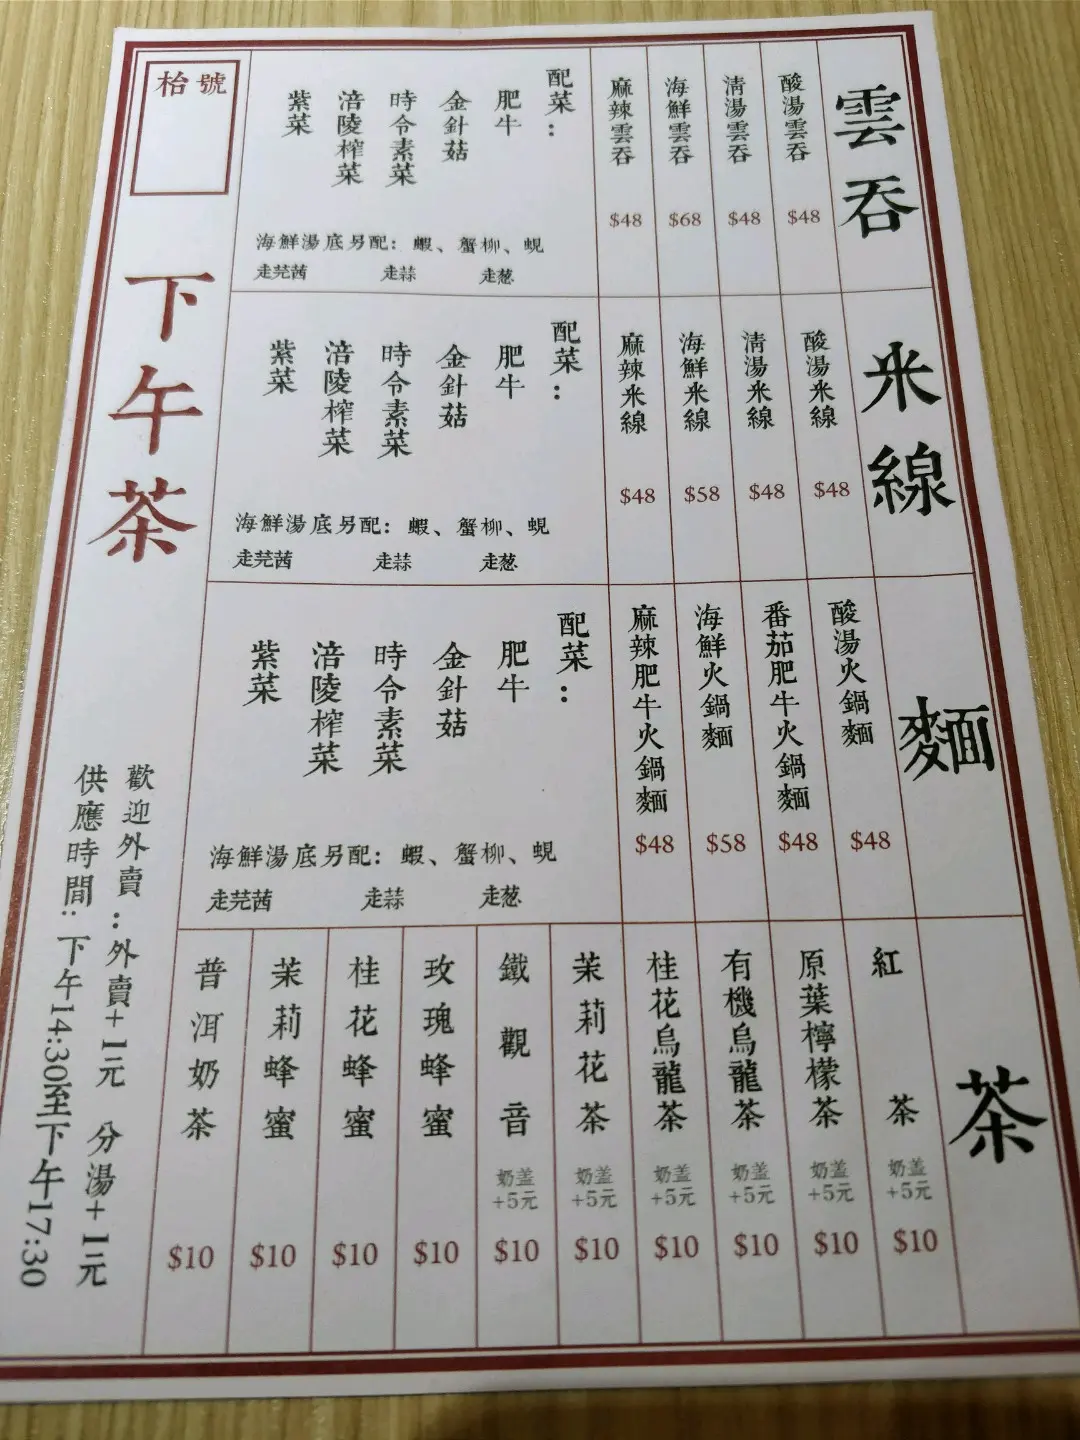 雲吞
酸湯雲吞
$48
清湯雲吞
$48
海鮮雲吞
$68
麻辣雲吞
$48
配菜：
肥牛
金針菇
時令素菜
涪陵榨菜
紫菜
海鮮湯底另配：蝦、蟹柳、蜆
走芫茜 走蒜 走葱
米線
酸湯米線
$48
清湯米線
$48
海鮮米線
$58
麻辣米線
$48
配菜：
肥牛
金針菇
時令素菜
涪陵榨菜
紫菜
海鮮湯底另配：蝦、蟹柳、蜆
走芫茜 走蒜 走葱
麵
酸湯火鍋麵
$48
番茄肥牛火鍋麵
$48
海鮮火鍋麵
$58
麻辣肥牛火鍋麵
$48
配菜：
肥牛
金針菇
時令素菜
涪陵榨菜
紫菜
海鮮湯底另配：蝦、蟹柳、蜆
走芫茜 走蒜 走葱
茶
紅茶
奶盖
+5元
$10
原葉檸檬茶
奶盖
+5元
$10
有機烏龍茶
奶盖
+5元
$10
桂花烏龍茶
奶盖
+5元
$10
茉莉花茶
奶盖
+5元
$10
鐵觀音
奶盖
+5元
$10
玫瑰蜂蜜
$10
桂花蜂蜜
$10
茉莉蜂蜜
$10
普洱奶茶
$10
枱號
下午茶
歡迎外賣：外賣+1元 分湯+1元
供應時間：下午14:30至下午17:30